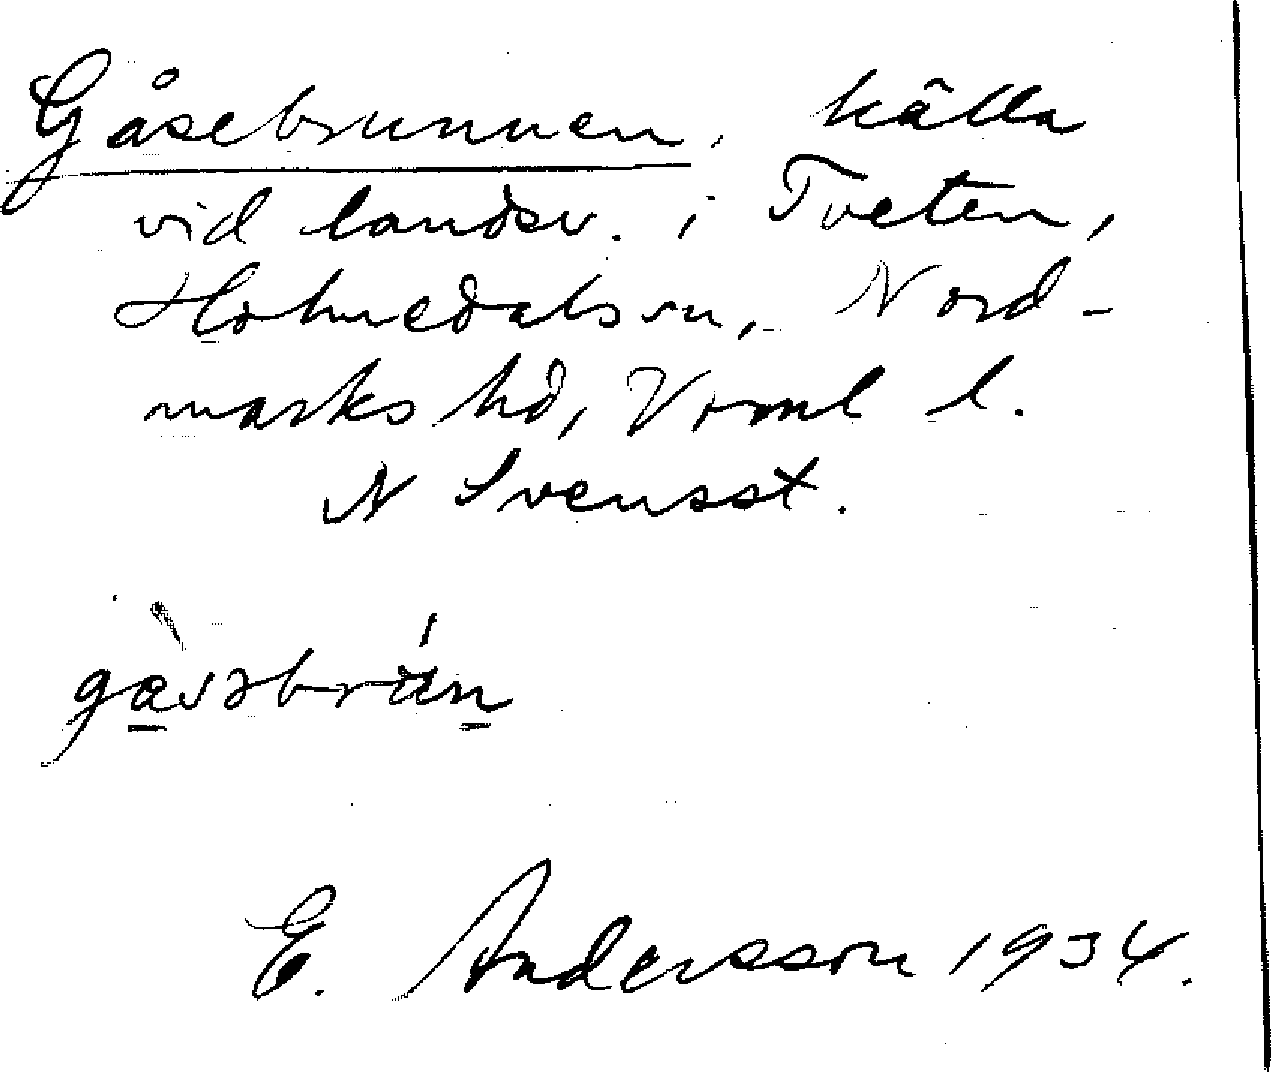 Gåsebrunnen, källa
vid landsv. i Tveten,
Holmedals sn, Nord-
marks hd, Vrml l.
N Svensst.
E. Andersson 1934.